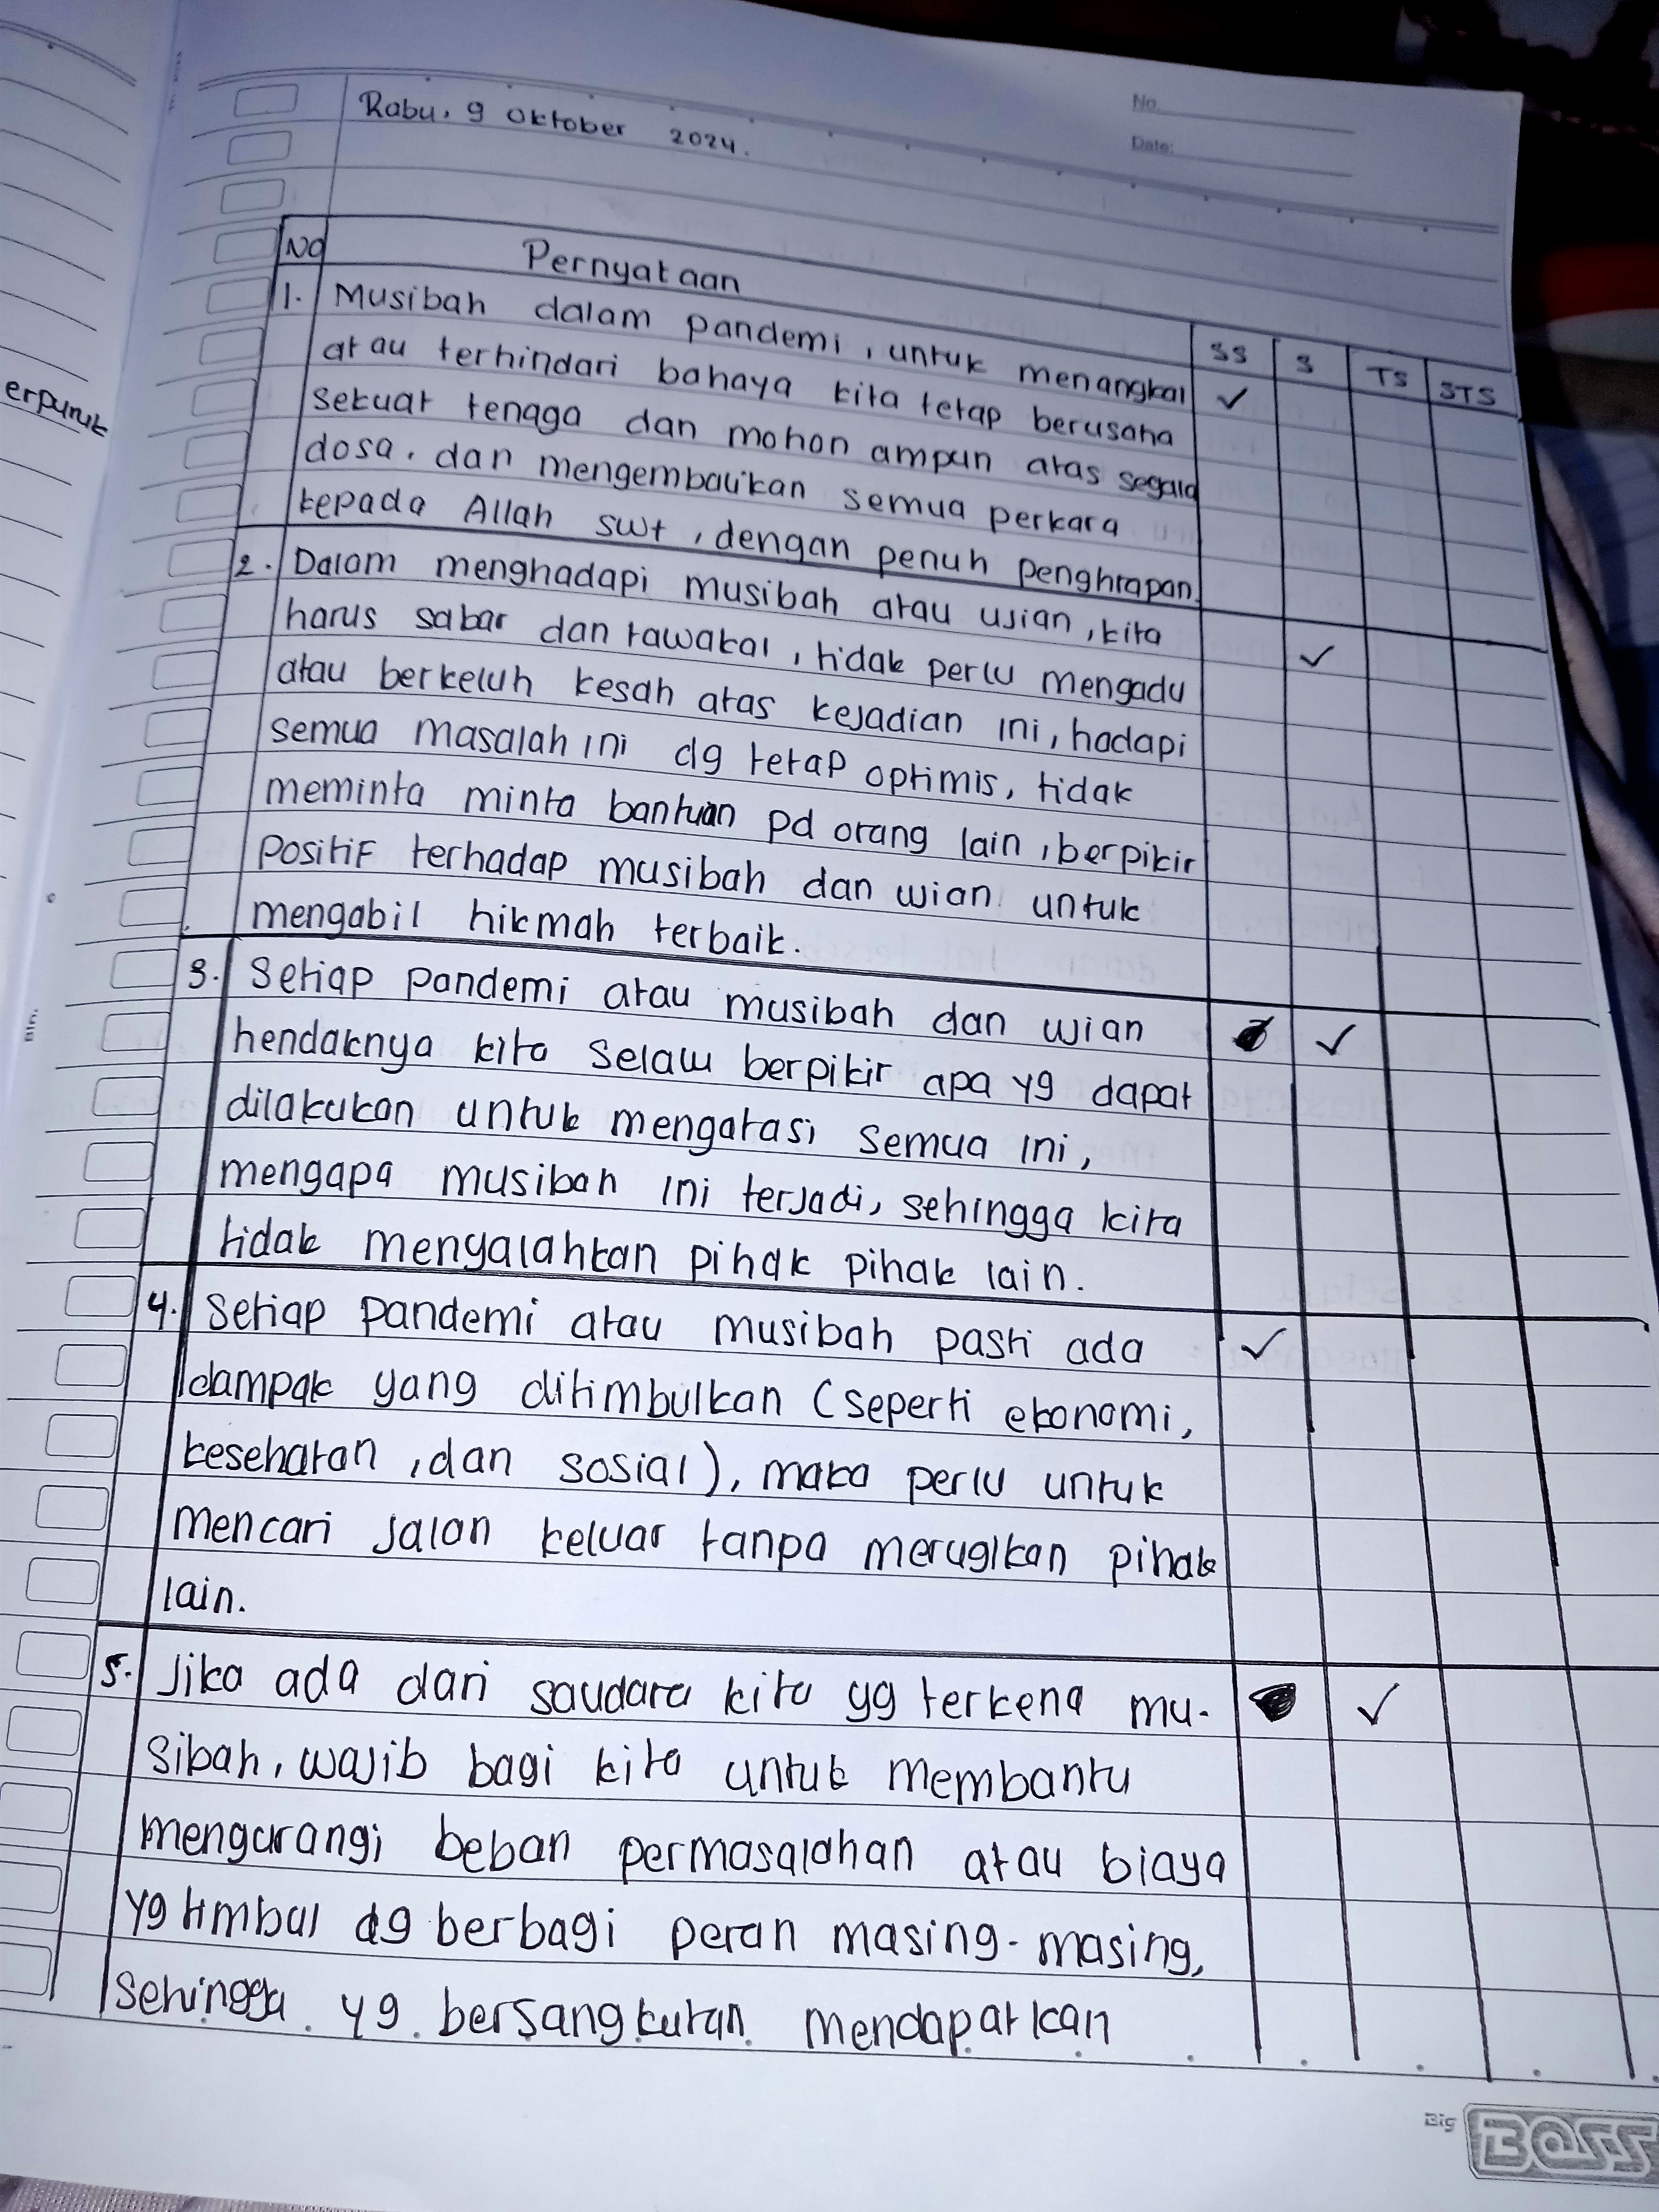 Rabu, 9 Oktober 2024.
No.
Date:
erpuruk
No Pernyataan SS S TS STS
1. Musibah dalam pandemi, untuk menangkal ✓
atau terhindari bahaya kita tetap berusaha
sekuat tenaga dan mohon ampun atas segala
dosa, dan mengembalikan semua perkara
kepada Allah swt, dengan penuh penghrapan.
2. Dalam menghadapi musibah atau ujian, kita ✓
harus sabar dan tawakal, tidak perlu mengadu
atau berkeluh kesah atas kejadian ini, hadapi
semua masalah ini dg tetap optimis, tidak
meminta minta bantuan pd orang lain, berpikir
positif terhadap musibah dan ujian untuk
mengabil hikmah terbaik.
3. Setiap pandemi atau musibah dan ujian ✓
hendaknya kita selalu berpikir apa yg dapat
dilakukan untuk mengatasi semua ini,
mengapa musibah ini terjadi, sehingga kita
tidak menyalahkan pihak pihak lain.
4. Setiap pandemi atau musibah pasti ada ✓
dampak yang ditimbulkan (seperti ekonomi,
kesehatan, dan sosial), maka perlu untuk
mencari jalan keluar tanpa merugikan pihak
lain.
5. Jika ada dari saudara kita yg terkena mu- ✓
sibah, wajib bagi kita untuk membantu
mengurangi beban permasalahan atau biaya
yg timbul dg berbagi peran masing-masing,
sehingga yg bersangkutan mendapatkan
Big BOSS